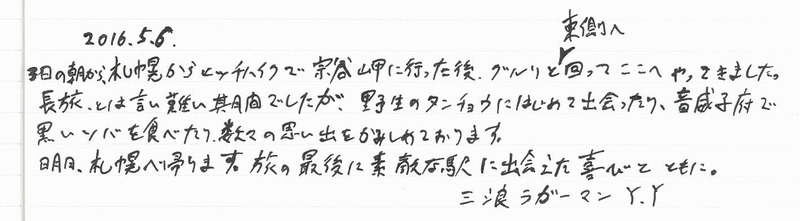 2016.5.6.
東側へ
3日の朝から、札幌からヒッチハイクで宗谷岬に行った後、グルリと回ってここへやってきました。
長旅、とは言い難い期間でしたが、野生のタンチョウにはじめて出会ったり、音威子府で
黒いソバを食べたり、数々の思い出をかみしめております。
明日、札幌へ帰ります。旅の最後に素敵な駅に出会えた喜びとともに。
三浪ラガーマン Y.Y